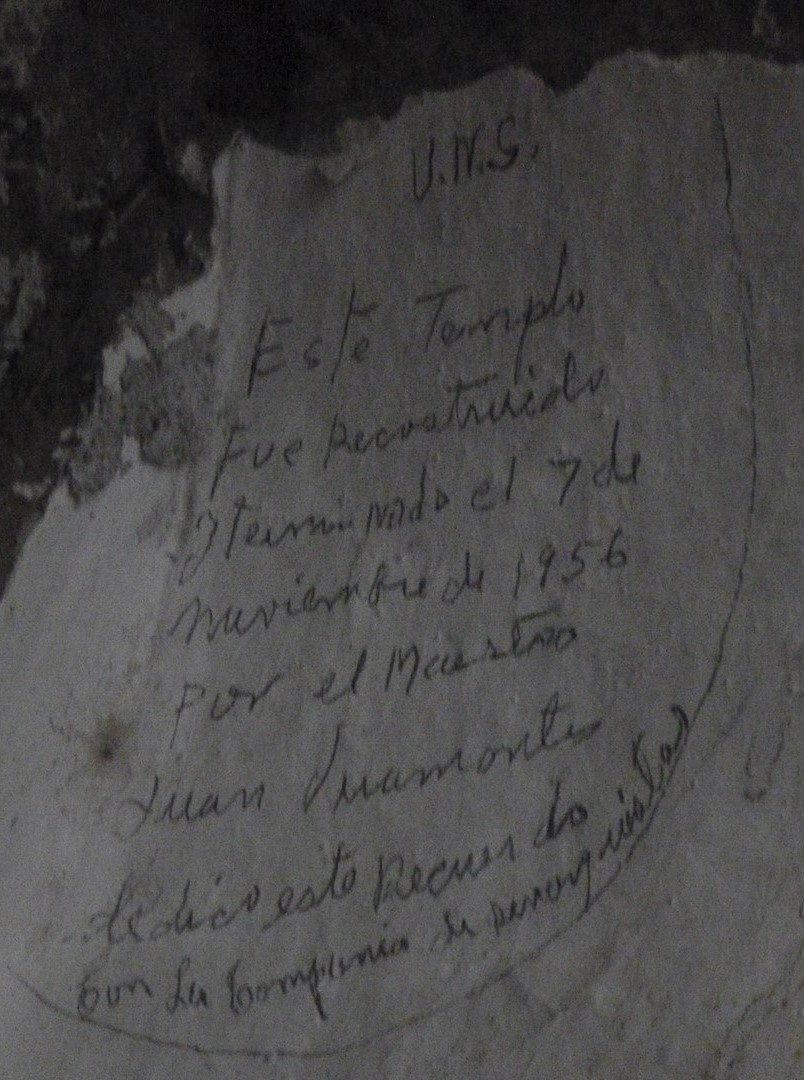 U.N.S.
Este Templo
Fue Recostruido
y terminado el 7 de
nuviembre de 1956
Por el Maestro
Juan Viramontes
dedico este Recuerdo
Con La Compania de